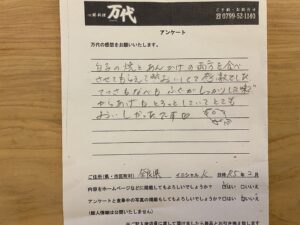 万代
ご予約・お問合せ
☎ 0799-52-1140
アンケート
万代の感想をお願いいたします。
白子の焼とあんかけの両方を食べ
させてもらえて おいしくて 最高でした
てっさもなべも ふぐが しっかり
からあげも とろっとしていてとても
おいしかったです♡
ご住所(県・市区町村) 奈良県 イニシャル K 日時 R5年2月
内容をホームページなどに掲載してもよろしいでしょうか? はい いいえ
アンケートと食事中の写真の掲載してもよろしいでしょうか? はい いいえ
(個人情報は公開いたしません)